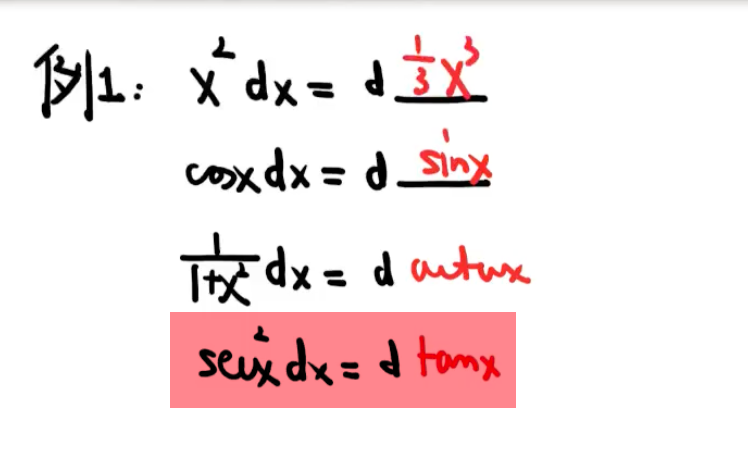 例1: x² dx = d ⅓x³
cosx dx = d sinx
1/(1+x²) dx = d arctanx
sec²x dx = d tanx